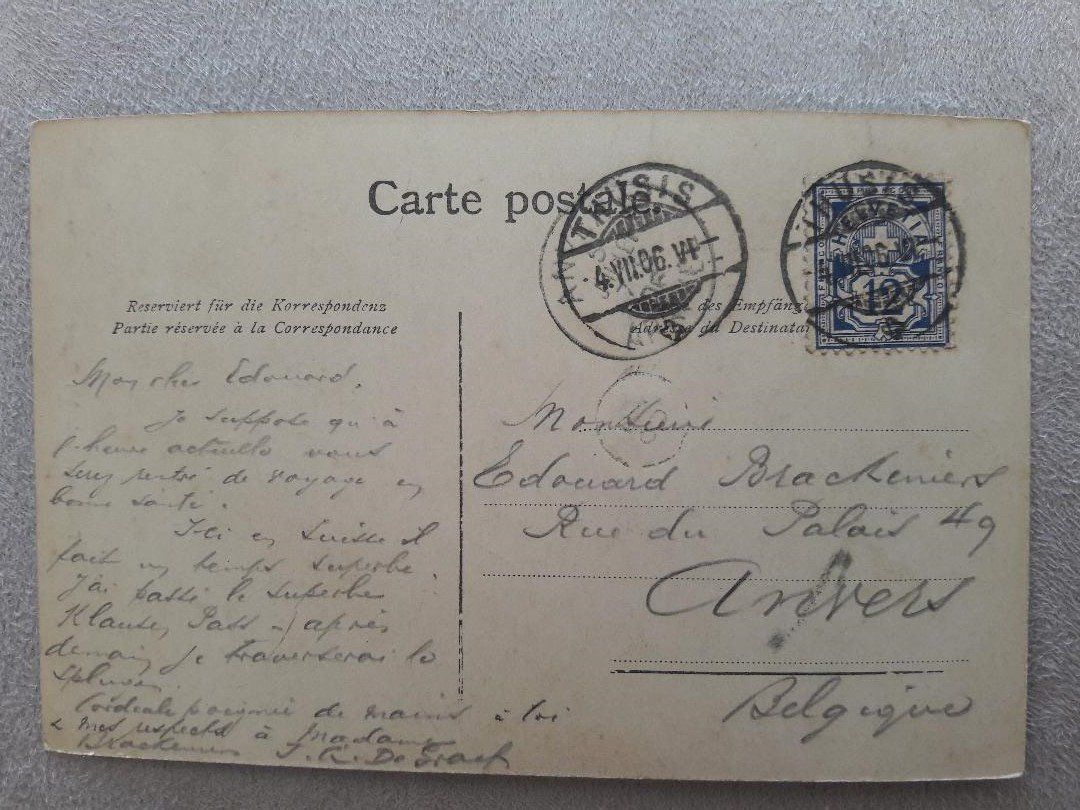 Carte postale.
THUSIS
4.VII.06.VI
HELVETIA
12
Reserviert für die Korrespondenz
Partie réservée à la Correspondance
des Empfäng
Adresse du Destinatai
Mon cher Edouard,
Je suppose qu'à
l'heure actuelle vous
serez rentré de voyage en
bonne santé.
Ici en Suisse il
fait un temps superbe.
J'ai passé le superbe
Klausen Pass - après
demain je traverserai le
Splugen
Cordiale poignée de mains à toi
& mes respects à Madame
Brackeniers J. De Graef
Monsieur
Edouard Brackeniers
Rue du Palais 49
Anvers
Belgique